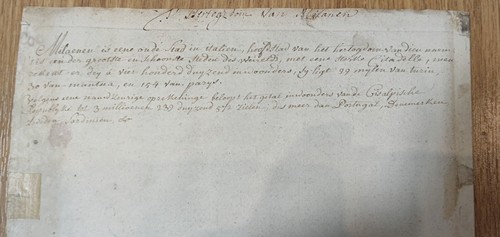 Het Hertogdom van Milanen
Milaenen is eene oude stad in italien, hoofdstad van het hertogdom van dien naem
een der grootste en schoonste steden des wereld, met eene sterke Citadelle, men
telt er dry à vier honderd duyzend inwoonders, sy ligt 99 mylen van turin
30 van mantua, en 154 van parys.
Volgens eene nauwkeurige optrekkinge beloopt het getal inwoonders van de Cisalpische
tot 3 millioenen 239 duyzend 572 zielen, dus meer dan Portugal, Denemerken
Sardinien, &c